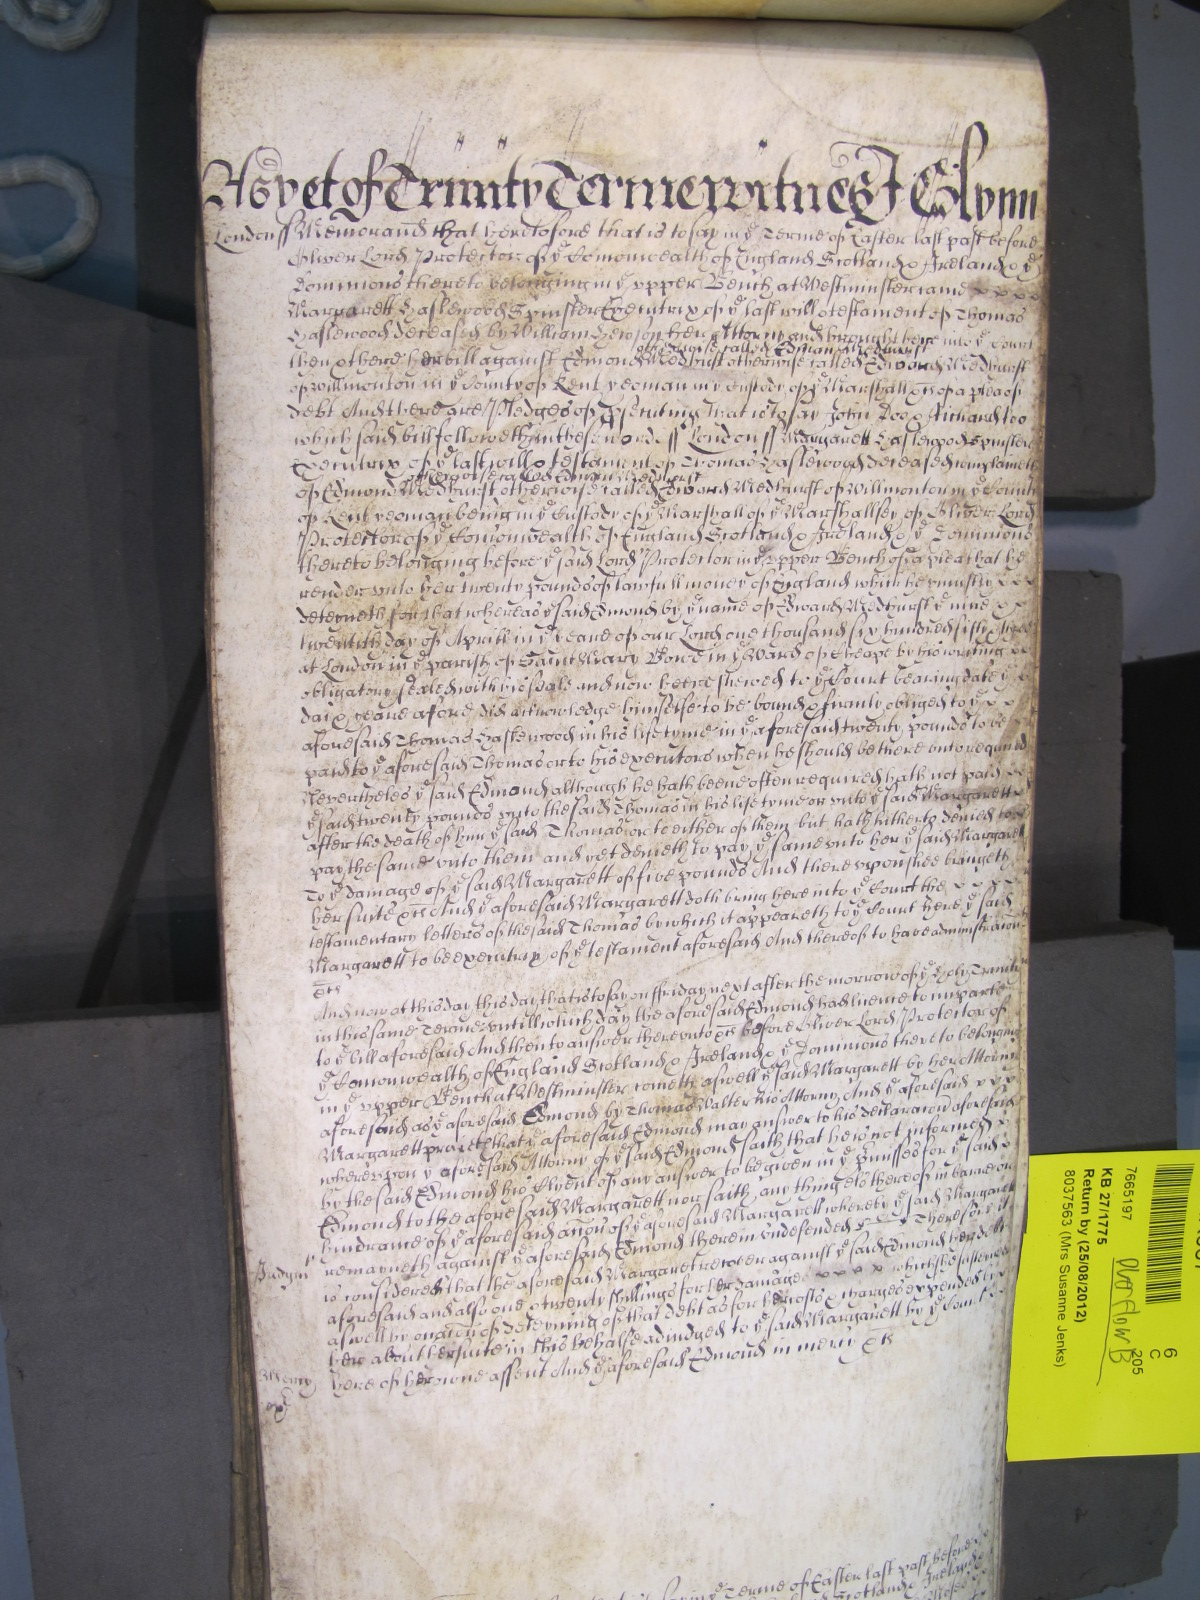 As yet of Trinity Terme witnes J Glynn
London ss Memorand that heretofore that is to say in ye Terme of Easter last past before
Oliver Lord Protector of ye Comonwealth of England Scotland & Ireland & ye
Dominions thereto belonging in ye upper Bench at Westminster came
Margarett Haslewood Spinster Executrix of ye last will & testament of Thomas
Haslewood deceased by William her Attorny and brought here into ye Court
then & there her bill against Edmond Medhurst otherwise called Edward Medhurst
otherwise called Edmund Medhurst
of Willmonton in ye County of Kent yeoman in ye Custody of ye Marshall &c of a plea of
debt And there are Pledges of prosecuting That is to say John Doo & Richard Roo
which said bill followeth in these words ss London ss Margarett Haslewood Spinster
Executrix of ye last will & testament of Thomas Haslewood deceased complaineth
otherwise called Edmund Medhurst
of Edmond Medhurst otherwise called Edward Medhurst of Willmonton in ye County
of Kent yeoman being in ye Custody of ye Marshall of ye Marshallsey of Oliver Lord
Protector of ye Comonwealth of England Scotland & Ireland & ye Dominions
thereto belonging before ye said Lord Protector in ye upper Bench of a plea that he
render unto her twenty pounds of lawfull money of England which he uniustly
deteyneth for that whereas ye said Edmond by ye name of Edward Medhurst ye nine
twentith day of Aprill in ye yeare of our Lord one thousand six hundred fifty three
at London in ye parish of Saint Mary Bowe in ye Ward of Cheape by his writing
obligatory sealed with his seale and now heere shewed to ye Court bearing date ye
day & yeare aforesd did acknowledge himselfe to be bound & firmly obliged to ye
aforesaid Thomas Haslewood in his life tyme in ye aforesaid twenty pounds to be
paid to ye aforesaid Thomas or to his executors when he should be there unto required
Nevertheles ye said Edmond although he hath beene often required hath not paid
ye said twenty pounds unto the said Thomas in his life tyme or unto ye said Margarett
after the death of him ye said Thomas or to either of them but hath hitherto denied to
pay the same unto them and yet denieth to pay ye same unto her ye said Margarett
To ye damage of ye said Margarett of five pounds And thereupon shee bringeth
her suite &c And ye aforesaid Margarett doth bring here into ye Court the
testamentary letters of the said Thomas by which it appeareth to ye Court here ye said
Margarett to be executrix of ye testament aforesaid And thereof to have administracon
&c
And now at this day this day that is to say on Friday next after the morrow of ye Holy Trinity
in this same Terme untill which day the aforesaid Edmond had licence to imparle
to ye bill aforesaid And then to answer thereunto &c before Oliver Lord Protector of
ye Comonwealth of England Scotland & Ireland & ye Dominions thereto belonging
in ye upper Bench at Westminster cometh aswell ye said Margarett by her Attorny
aforesaid as ye aforesaid Edmond by Thomas Walter his Attorny And ye aforesaid
Margarett prayeth that ye aforesaid Edmond may answer to his declaracon aforesaid
whereupon ye aforesaid Attorny of ye said Edmond saith that he is not informed
by the said Edmond his Client of any answer to be given in ye premisses for ye said
Edmond to the aforesaid Margarett nor saith any thing els thereof in barre or
hindrance of ye aforesaid accon of ye aforesaid Margarett whereby ye said Margarett
remayneth against ye aforesaid Edmond therein undefended Therefore it
Judgmt is considered that the aforesaid Margarett recover against ye said Edmond her debt
aforesaid and also one & twenty shillings for her damages which she susteined
aswell by occacon of deteyning of that debt as for her costs & charges expended by
her about her suite in this behalfe adiudged to ye said Margarett by ye Court
Mercy here of her owne assent And ye aforesaid Edmond in mercy &c
in ye Terme of Easter last past before
Scotland & Ireland
7665197
KB 27/1775
Return by (25/08/2012)
8037563 (Mrs Susanne Jenks)
6
C
205